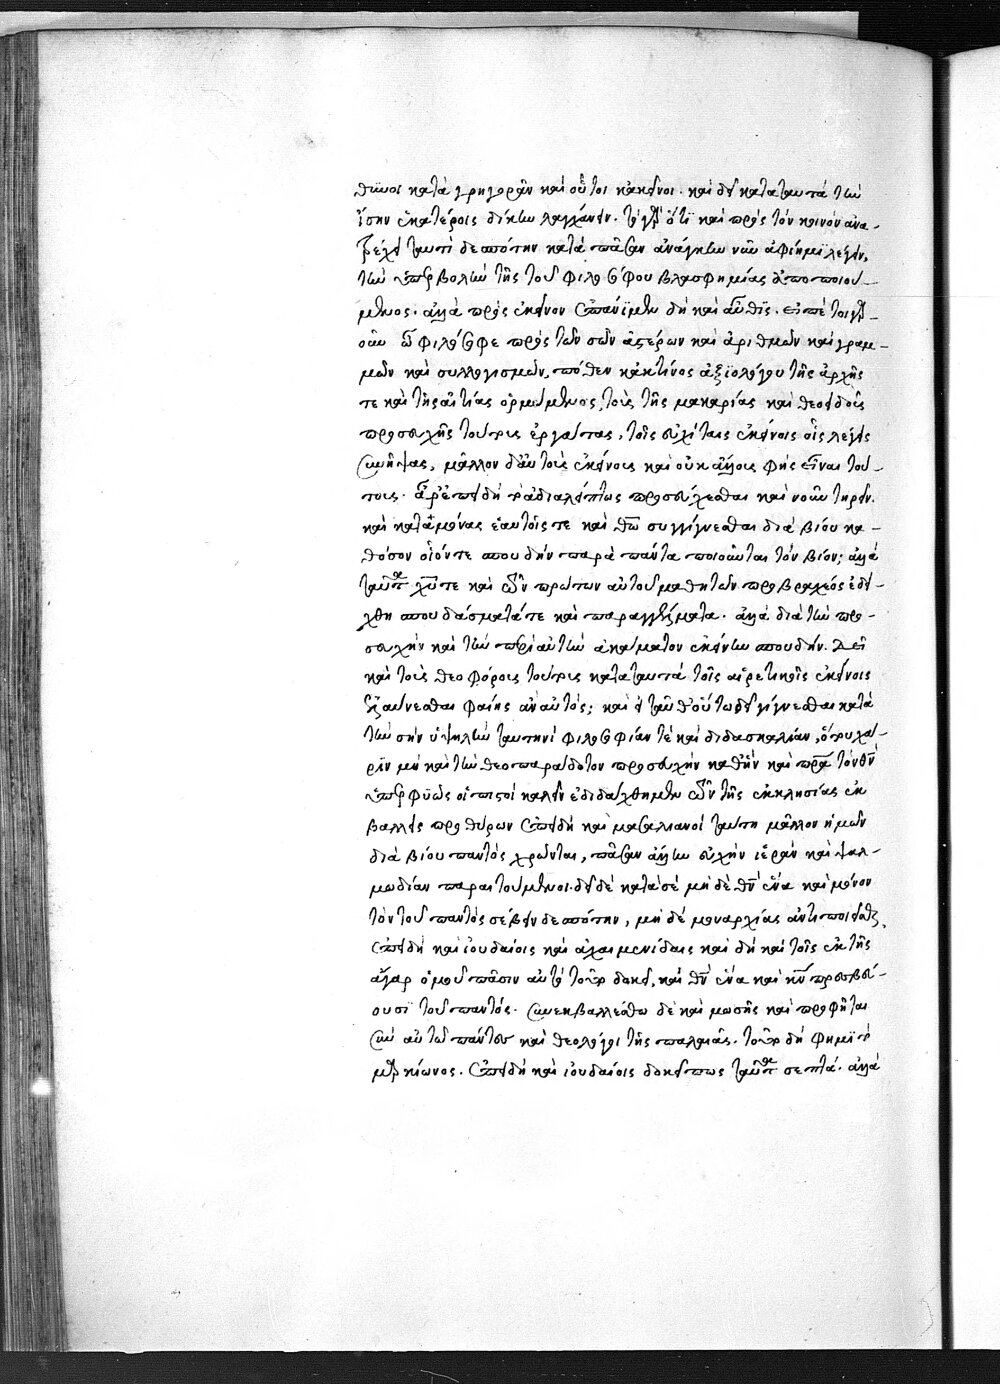 θῖνοι κατὰ γρηγορᾶν καὶ οὗτοι κἀκεῖνοι. καὶ δεῖ κατὰ ταυτά τὴν
ἴσην ἑκατέροις δίκην λαγχάνειν. ὅτι καὶ πρὸς τὸν κοινὸν ἀνα-
τρέχει ταυτὶ δεσπότην κατὰ πᾶσαν ἀνάγκην νῦν ἀφίημι λέγειν,
τὴν ὑπερβολὴν τῆς τοῦ φιλοσόφου βλασφημίας ἀποποιού-
μενος. ἀλλὰ πρὸς ἐκεῖνον ἐπάνιμεν δὴ καὶ αὖθις. εἰπέ τοιγαρ-
οῦν ὦ φιλόσοφε πρὸς τῶν σῶν ἀστέρων καὶ ἀριθμῶν καὶ γραμ-
μῶν καὶ συλλογισμῶν, πόθεν κἀκ τίνος ἀξιολόγου τῆς ἀρχῆς
τε καὶ τῆς αἰτίας ὁρμώμενος, τοὺς τῆς μακαρίας καὶ θεοειδοῦς
προσευχῆς τουτουσὶ ἐργάτας, τοῖς εὐχίταις ἐκείνοις οἷς λέγεις
συνῆψας, μᾶλλον δ' αὐτοὺς ἐκείνους καὶ οὐκ ἄλλους φῂς εἶναι τού-
τους. ἆρ' ἐπειδὴ τὸ ἀδιαλείπτως προσεύχεσθαι καὶ νοῦν τηρεῖν.
καὶ καταμόνας ἑαυτοῖς τε καὶ θεῷ συγγίγνεσθαι διὰ βίου κα-
θόσον οἷόν τε σπουδὴν παρὰ πάντα ποιοῦνται τὸν βίον; ἀλλὰ
ταῦτα χριστοῦ τε καὶ τῶν πρώτων αὐτοῦ μαθητῶν πρὸ βραχέος ἐδεί-
χθη σπουδάσματά τε καὶ παραγγέλματα. ἀλλὰ διὰ τὴν προ-
σευχὴν καὶ τὴν περὶ αὐτὴν ἀκάματον ἐκείνην σπουδήν. δεῖ
καὶ τοὺς θεοφόρους τουτουσὶ κατὰ ταυτὰ τοῖς αἱρετικοῖς ἐκείνοις
φαίης ἂν αὐτός; καὶ εἰ ταῦθ' οὕτω δεῖ γίγνεσθαι κατὰ
τὴν σὴν ὑψηλὴν ταυτηνὶ φιλοσοφίαν τὲ καὶ διδασκαλίαν,
μὴ καὶ τὴν θεοπαράδοτον προσευχὴν καθ' ἣν καὶ πατέρα τὸν θεὸν
ὑπερφυῶς οἱ πιστοὶ καλεῖν ἐδιδάχθημεν τῶν τῆς ἐκκλησίας ἐκ
βάλλεις προθύρων ἐπειδὴ καὶ μασαλιανοὶ ταύτῃ μᾶλλον ἡμῶν
διὰ βίου παντὸς χρῶνται, πᾶσαν ἄλλην εὐχὴν ἱερὰν καὶ ψαλ-
μωδίαν παραιτούμενοι. δεῖ δὲ κατὰ σὲ μηδὲ θεὸν ἕνα καὶ μόνον
τὸν τοῦ παντὸς σέβειν δεσπότην, μηδὲ μοναρχίας ἀντιποιεῖσθαι,
ἐπειδὴ καὶ ἰουδαίοις καὶ ἀχαιμενίδαις καὶ δὴ καὶ τοῖς ἐκ τῆς
ἄγαρ ὁμοῦ πᾶσιν αὐτὸ τοῦτο δοκεῖ, καὶ θεὸν ἕνα καὶ κύριον πρεσβεύ-
ουσι τοῦ παντός. συνεκβαλλέσθω δὲ καὶ μωσῆς καὶ προφῆται
σὺν αὐτῷ πάντες καὶ θεολόγοι τῆς παλαιᾶς. τοῦτο δὴ φημὶ τὸ
μαρκίωνος. ἐπειδὴ καὶ ἰουδαίοις δοκεῖ πως ταῦτα σεπτά. ἀλλὰ